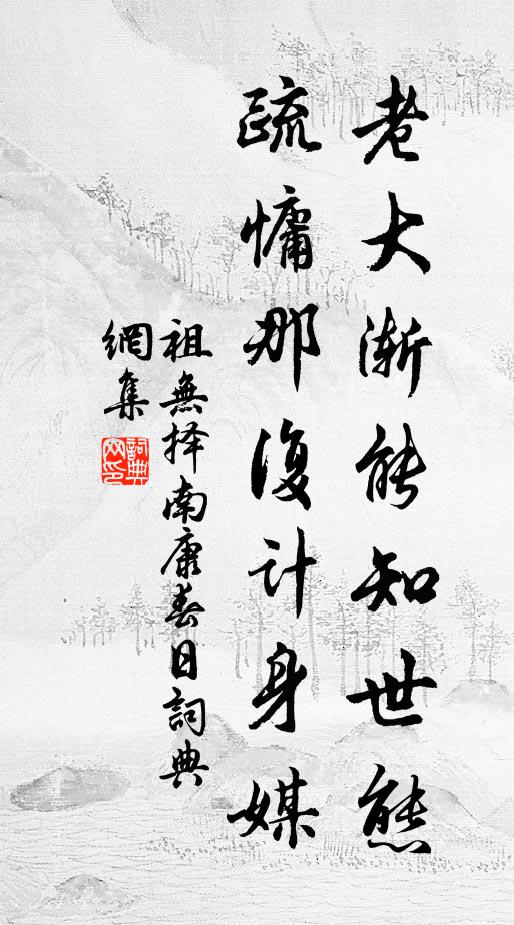 老大漸能知世態
疏慵那復計身媒
祖無择南康春日詞典
網集
詞典網印